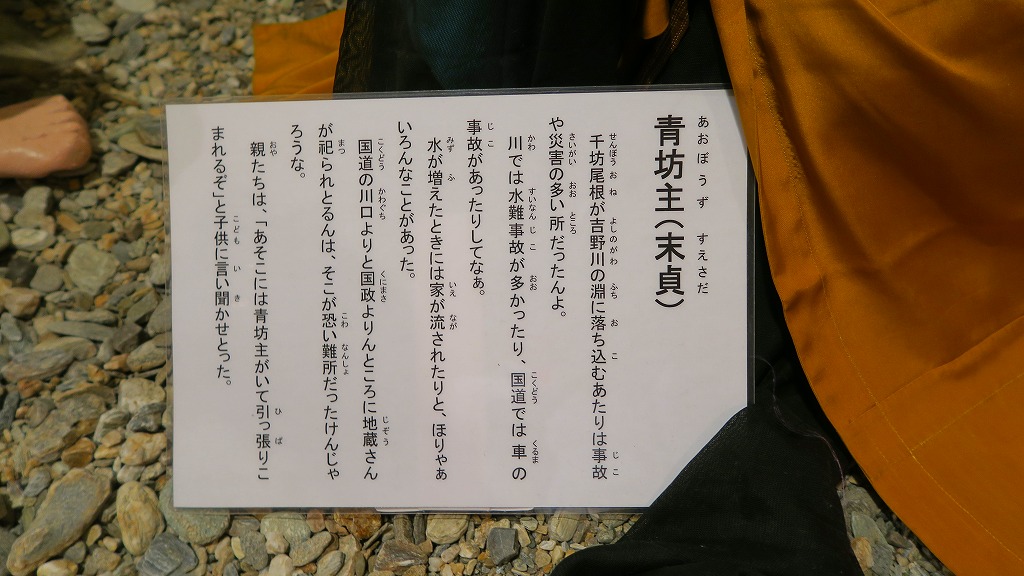 青坊主(末貞)
千坊尾根が吉野川の淵に落ち込むあたりは事故
や災害の多い所だったんよ。
川では水難事故が多かったり、国道では車の
事故があったりしてなぁ。
水が増えたときには家が流されたりと、ほりゃぁ
いろんなことがあった。
国道の川口よりと国政よりんところに地蔵さん
が祀られとるんは、そこが恐い難所だったけんじゃ
ろうな。
親たちは、「あそこには青坊主がいて引っ張りこ
まれるぞ」と子供に言い聞かせとった。